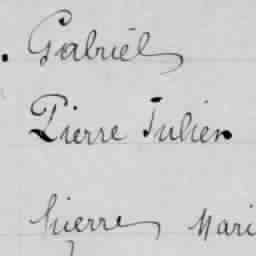 Gabriel
Pierre Julien
Pierre Mari